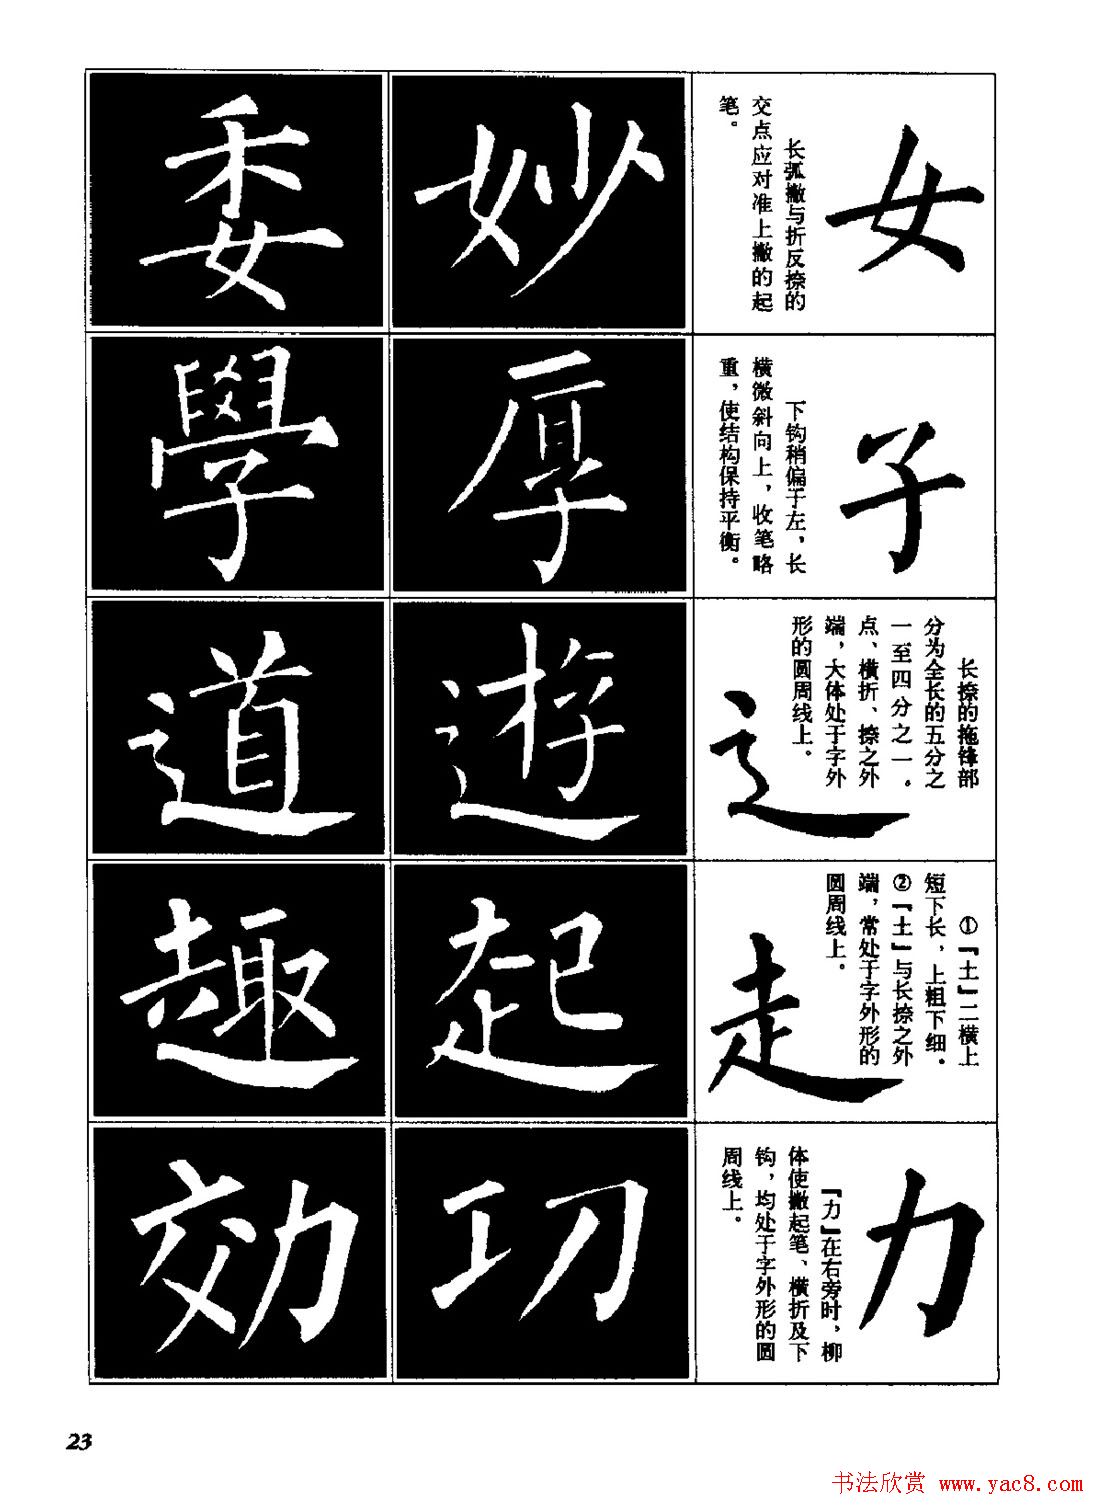 女
长弧撇与折反捺的
交点应对准上撇的起
笔。
妙
委
子
下钩稍偏于左，长
横微斜向上，收笔略
重，使结构保持平衡。
厚
學
辶
长捺的拖锋部
分为全长的五分之
一至四分之一。
点、横折、捺之外
端，大体处于字外
形的圆周线上。
遊
道
走
①『土』二横上
短下长，上粗下细．
②『土』与长捺之外
端，常处于字外形的
圆周线上。
起
趣
力
『力』在右旁时，柳
体使撇起笔、横折及下
钩，均处于字外形的圆
周线上。
功
効
23
书法欣赏 www.yac8.com